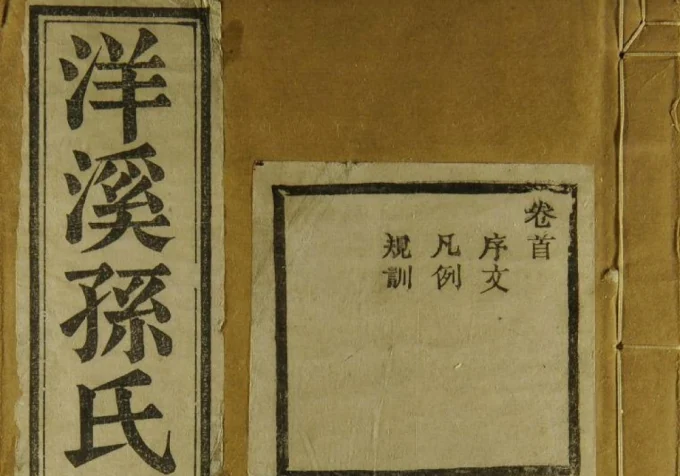 洋溪孫氏
卷首
序文
凡例
規訓